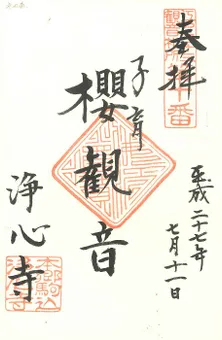 奉拝
子育
櫻觀音
平成二十七年
七月十一日
浄心寺
本駒込